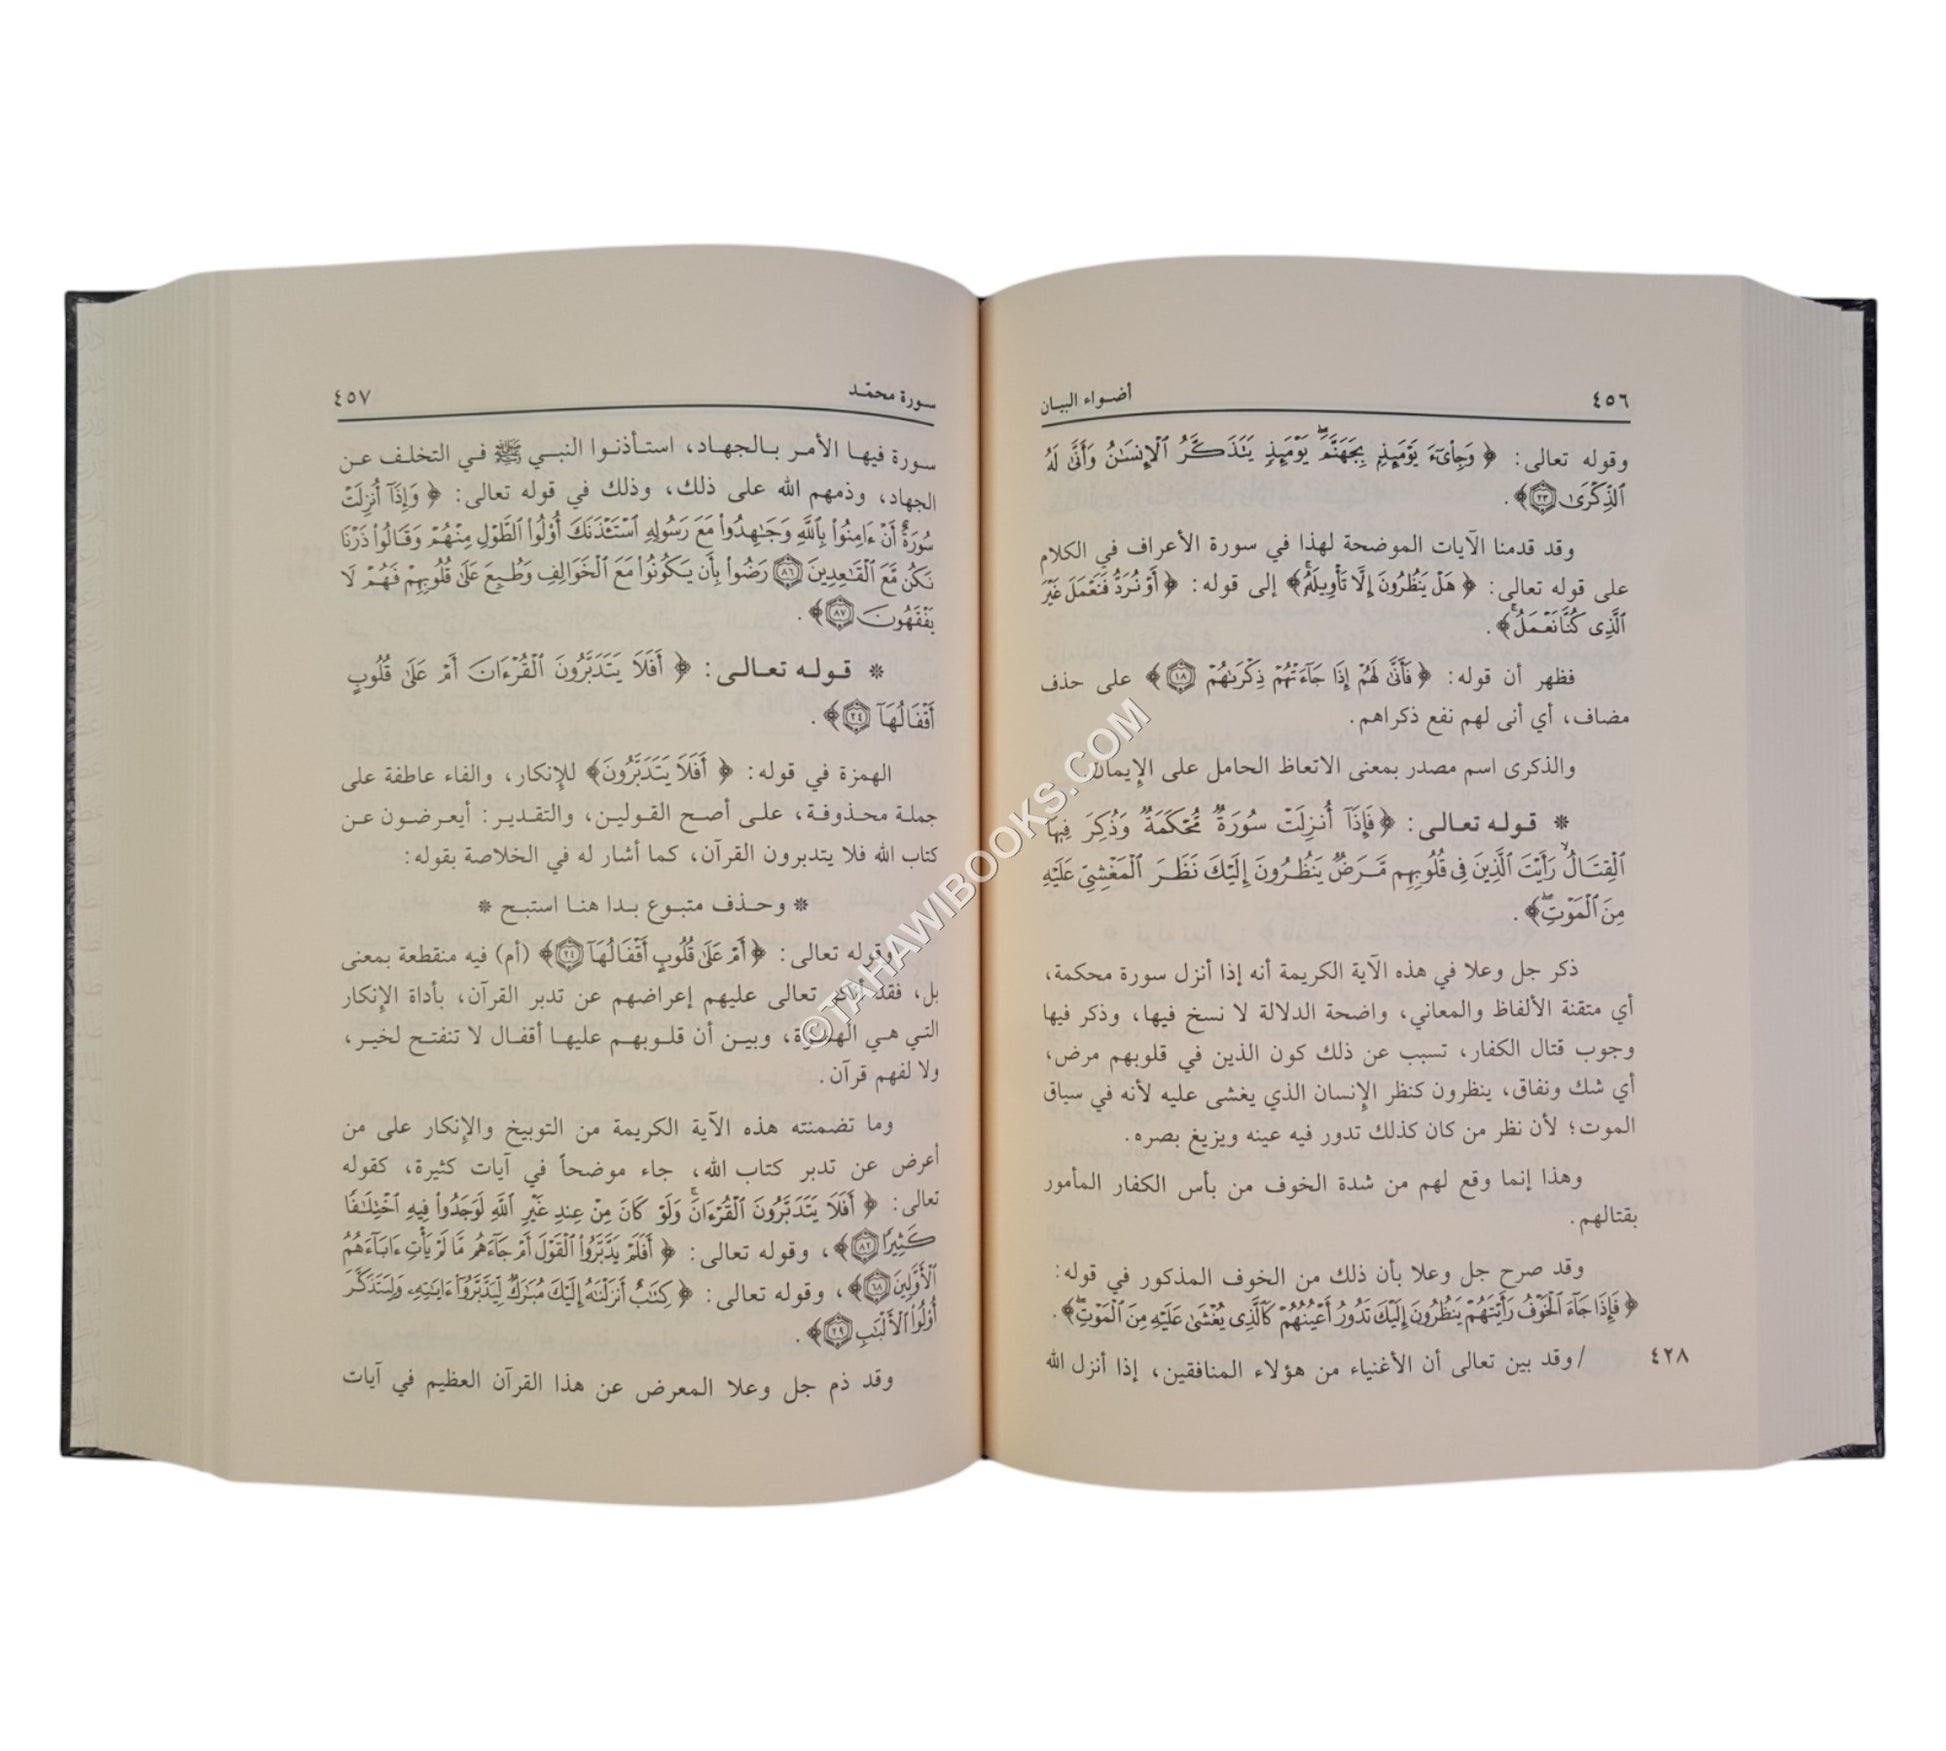 ٤٥٦
أضواء البيان
وقوله تعالى: ﴿ وَجِاْىٓءَ يَوْمَئِذٍۭ بِجَهَنَّمَۚ يَوْمَئِذٍ يَتَذَكَّرُ ٱلْإِنسَٰنُ وَأَنَّىٰ لَهُ
ٱلذِّكْرَىٰ ﴿٢٣﴾﴾.
وقد قدمنا الآيات الموضحة لهذا في سورة الأعراف في الكلام
على قوله تعالى: ﴿ هَلْ يَنظُرُونَ إِلَّا تَأْوِيلَهُۥۚ﴾ إلى قوله: ﴿ أَوْ نُرَدُّ فَنَعْمَلَ غَيْرَ
ٱلَّذِى كُنَّا نَعْمَلُۚ﴾.
فظهر أن قوله: ﴿ فَأَنَّىٰ لَهُمْ إِذَا جَآءَتْهُمْ ذِكْرَىٰهُمْ ﴿١٨﴾﴾ على حذف
مضاف، أي أنى لهم نفع ذكراهم.
والذكرى اسم مصدر بمعنى الاتعاظ الحامل على الإيمان.
* قوله تعالى: ﴿ فَإِذَآ أُنزِلَتْ سُورَةٌ مُّحْكَمَةٌ وَذُكِرَ فِيهَا
ٱلْقِتَالُۙ رَأَيْتَ ٱلَّذِينَ فِى قُلُوبِهِم مَّرَضٌ يَنظُرُونَ إِلَيْكَ نَظَرَ ٱلْمَغْشِىِّ عَلَيْهِ
مِنَ ٱلْمَوْتِۖ﴾.
ذكر جل وعلا في هذه الآية الكريمة أنه إذا أنزل سورة محكمة،
أي متقنة الألفاظ والمعاني، واضحة الدلالة لا نسخ فيها، وذكر فيها
وجوب قتال الكفار، تسبب عن ذلك كون الذين في قلوبهم مرض،
أي شك ونفاق، ينظرون كنظر الإنسان الذي يغشى عليه لأنه في سياق
الموت؛ لأن نظر من كان كذلك تدور فيه عينه ويزيغ بصره.
وهذا إنما وقع لهم من شدة الخوف من بأس الكفار المأمور
بقتالهم.
وقد صرح جل وعلا بأن ذلك من الخوف المذكور في قوله:
﴿ فَإِذَا جَآءَ ٱلْخَوْفُ رَأَيْتَهُمْ يَنظُرُونَ إِلَيْكَ تَدُورُ أَعْيُنُهُمْ كَٱلَّذِى يُغْشَىٰ عَلَيْهِ مِنَ ٱلْمَوْتِۖ﴾.
٤٢٨ / وقد بين تعالى أن الأغنياء من هؤلاء المنافقين، إذا أنزل الله
سورة محمّد
٤٥٧
سورة فيها الأمر بالجهاد، استأذنوا النبي ﷺ في التخلف عن
الجهاد، وذمهم الله على ذلك، وذلك في قوله تعالى: ﴿ وَإِذَآ أُنزِلَتْ
سُورَةٌ أَنْ ءَامِنُوا۟ بِٱللَّهِ وَجَٰهِدُوا۟ مَعَ رَسُولِهِ ٱسْتَـْٔذَنَكَ أُو۟لُوا۟ ٱلطَّوْلِ مِنْهُمْ وَقَالُوا۟ ذَرْنَا
نَكُن مَّعَ ٱلْقَٰعِدِينَ ﴿٨٦﴾ رَضُوا۟ بِأَن يَكُونُوا۟ مَعَ ٱلْخَوَالِفِ وَطُبِعَ عَلَىٰ قُلُوبِهِمْ فَهُمْ لَا
يَفْقَهُونَ ﴿٨٧﴾﴾.
* قوله تعالى: ﴿ أَفَلَا يَتَدَبَّرُونَ ٱلْقُرْءَانَ أَمْ عَلَىٰ قُلُوبٍ
أَقْفَالُهَآ ﴿٢٤﴾﴾.
الهمزة في قوله: ﴿ أَفَلَا يَتَدَبَّرُونَ﴾ للإنكار، والفاء عاطفة على
جملة محذوفة، على أصح القولين، والتقدير: أيعرضون عن
كتاب الله فلا يتدبرون القرآن، كما أشار له في الخلاصة بقوله:
* وحذف متبوع بدا هنا استبح *
وقوله تعالى: ﴿ أَمْ عَلَىٰ قُلُوبٍ أَقْفَالُهَآ ﴿٢٤﴾﴾ (أم) فيه منقطعة بمعنى
بل، فقد أنكر تعالى عليهم إعراضهم عن تدبر القرآن، بأداة الإنكار
التي هي الهمزة، وبين أن قلوبهم عليها أقفال لا تنفتح لخير،
ولا لفهم قرآن.
وما تضمنته هذه الآية الكريمة من التوبيخ والإنكار على من
أعرض عن تدبر كتاب الله، جاء موضحاً في آيات كثيرة، كقوله
تعالى: ﴿ أَفَلَا يَتَدَبَّرُونَ ٱلْقُرْءَانَۚ وَلَوْ كَانَ مِنْ عِندِ غَيْرِ ٱللَّهِ لَوَجَدُوا۟ فِيهِ ٱخْتِلَٰفًا
كَثِيرًا ﴿٨٢﴾﴾، وقوله تعالى: ﴿ أَفَلَمْ يَدَّبَّرُوا۟ ٱلْقَوْلَ أَمْ جَآءَهُم مَّا لَمْ يَأْتِ ءَابَآءَهُمُ
ٱلْأَوَّلِينَ ﴿٦٨﴾﴾، وقوله تعالى: ﴿ كِتَٰبٌ أَنزَلْنَٰهُ إِلَيْكَ مُبَٰرَكٌ لِّيَدَّبَّرُوٓا۟ ءَايَٰتِهِۦ وَلِيَتَذَكَّرَ
أُو۟لُوا۟ ٱلْأَلْبَٰبِ ﴿٢٩﴾﴾.
وقد ذم جل وعلا المعرض عن هذا القرآن العظيم في آيات
©TAHAWIBOOKS.COM